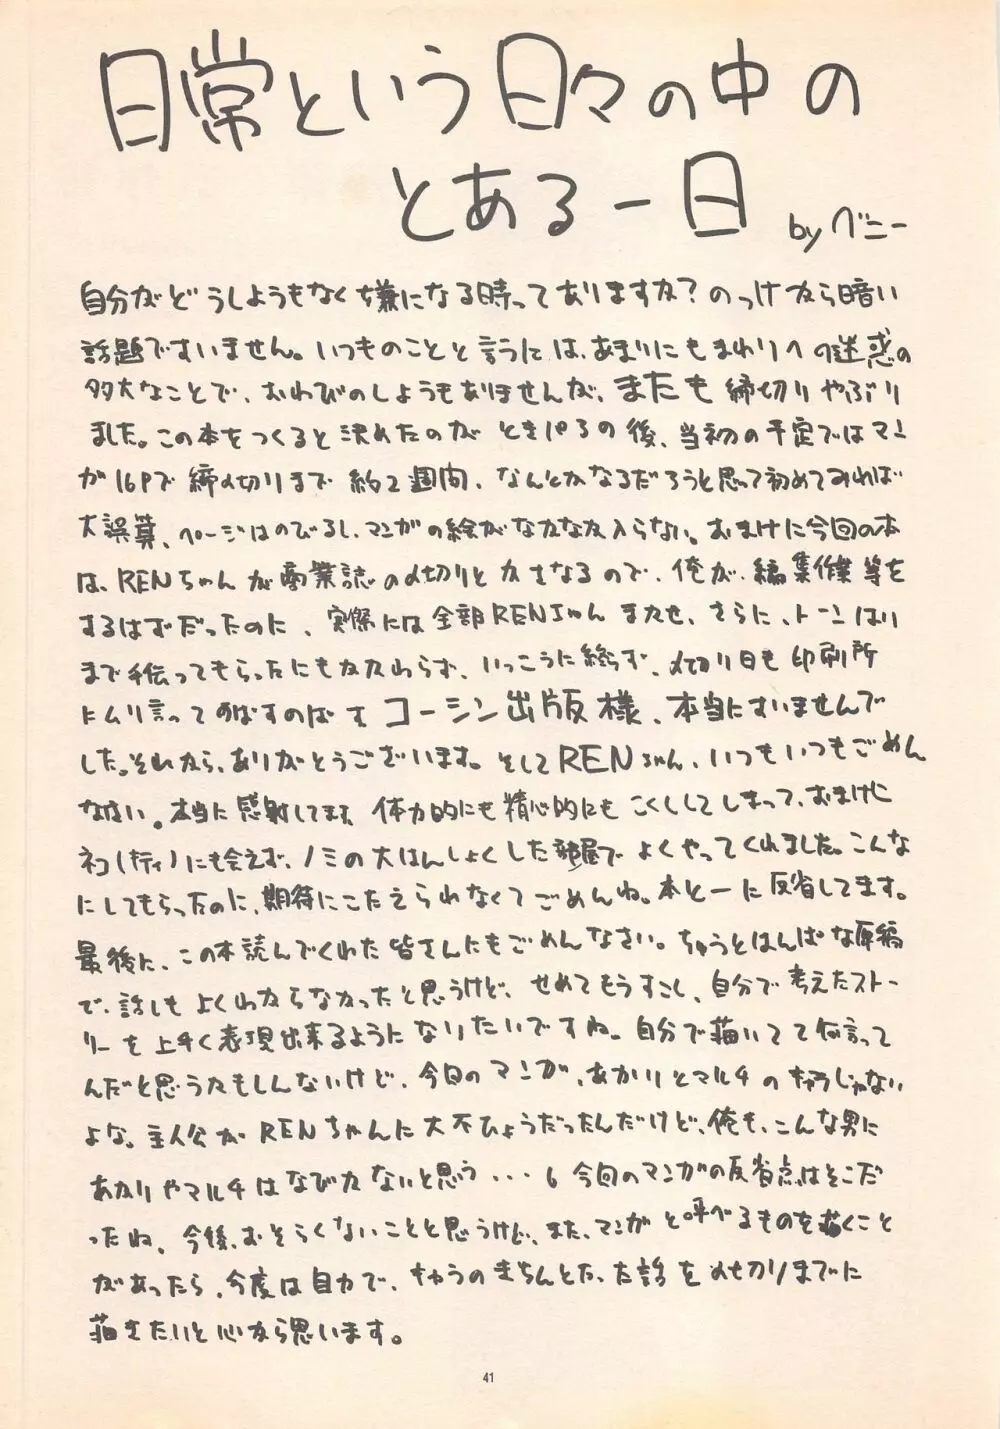 日常という日々の中の
とある一日 by ベニー
自分がどうしようもなく嫌になる時ってありますか?のっけから暗い
話題ですいません。いつものことと言うには、あまりにもまわりへの迷惑の
多大なことで、おわびのしようもありませんが、またも締切りやぶり
ました。この本をつくると決めたのがときパろの後、当初の予定ではマン
が16Pで締め切りまで約2週間、なんとかなるだろうと思って初めてみれば
大誤算、ページはのびるし、マンガの絵がなかなか入らない。おまけに今回の本
は、RENちゃんが商業誌の〆切りとかさなるので、俺が、編集作業等を
するはずだったのに、実際には全部RENちゃんまかせ、さらに、トーンはり
まで手伝ってもらったにもかかわらず、いっこうに終らず、〆切り日も印刷所
にムリ言ってのばすのばす コーシン出版様、本当にすいませんで
した。それから、ありがとうございます。そしてRENちゃん、いつもいつもごめん
なさい。本当に感射してます 体力的にも精心的にもこくししてしまって、おまけに
ネコ(ティ)にも会えず、ノミの大はんしょくした部屋でよくやってくれました。こんな
にしてもらったのに、期待にこたえられなくてごめんね。本と一に反省してます。
最後に、この本読んでくれた皆さんにもごめんなさい。ちゅうとはんぱな原稿
で、話しもよくわからなかったと思うけど、せめてもうすこし、自分で考えたストー
リーを上手く表現出来るようになりたいですね。自分で描いてて何言って
んだと思うかもしんないけど、今回のマンガ、あかりとマルチのキャラじゃない
よな。主人公がRENちゃんに大不ひょうだったんだけど、俺も、こんな男に
あかりやマルチはなびかないと思う・・・。今回のマンガの反省点はそこだ
ったね、今後、おそらくないことと思うけど、また、マンガと呼べるものを描くこと
があったら、今度は自力で、キャラのきちんとたった話を〆切りまでに
描きたいと心から思います。
41